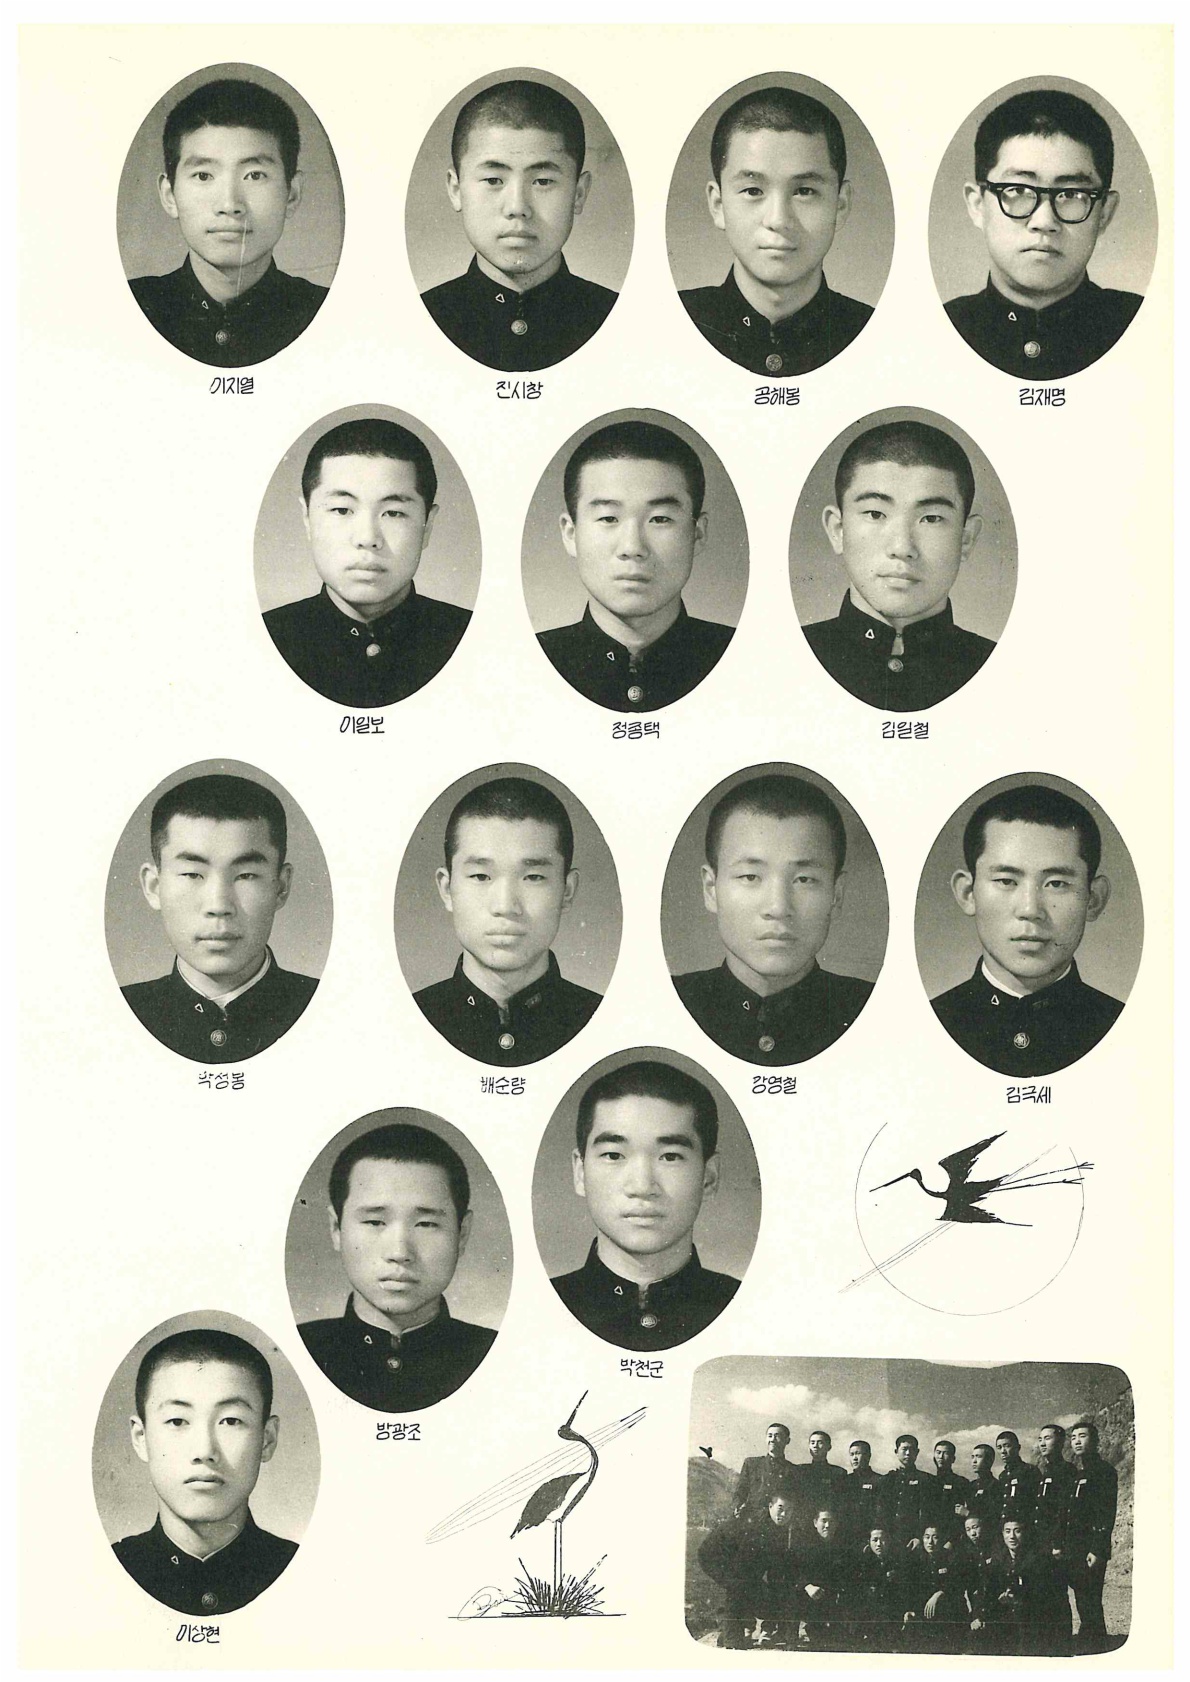 이지열
진시창
공해봉
김재명
이일보
정종택
김일철
박성봉
배순량
강영철
김극세
박천군
방광조
이상현